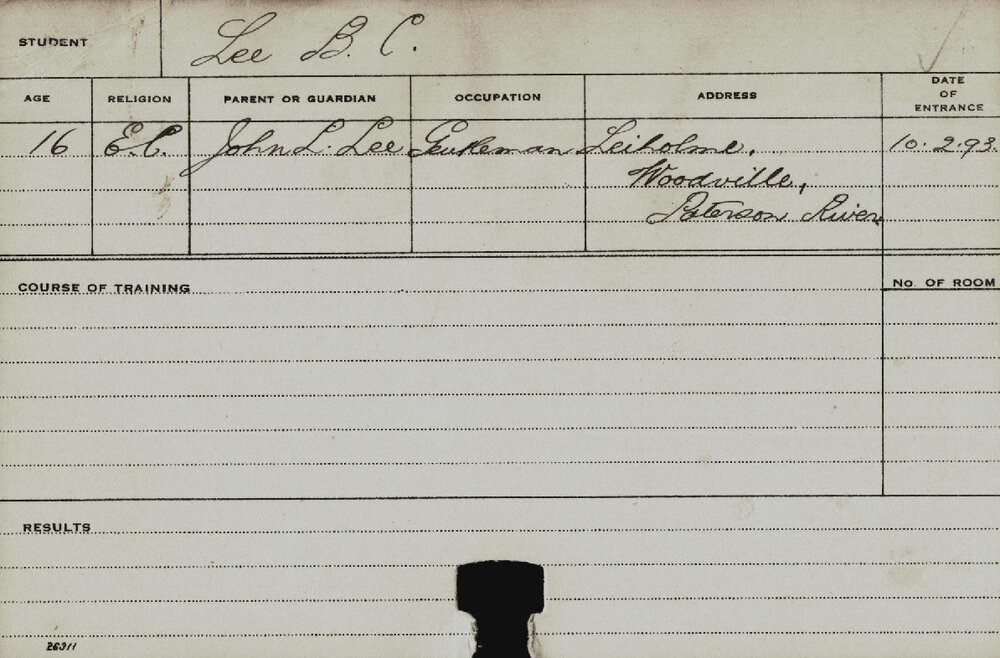 STUDENT Lee B. C.
AGE RELIGION PARENT OR GUARDIAN OCCUPATION ADDRESS DATE OF ENTRANCE
16 E.C. John L. Lee Gentleman Leiholme, 10.2.93.
Woodville,
Paterson River
COURSE OF TRAINING No. OF ROOM
RESULTS
26311